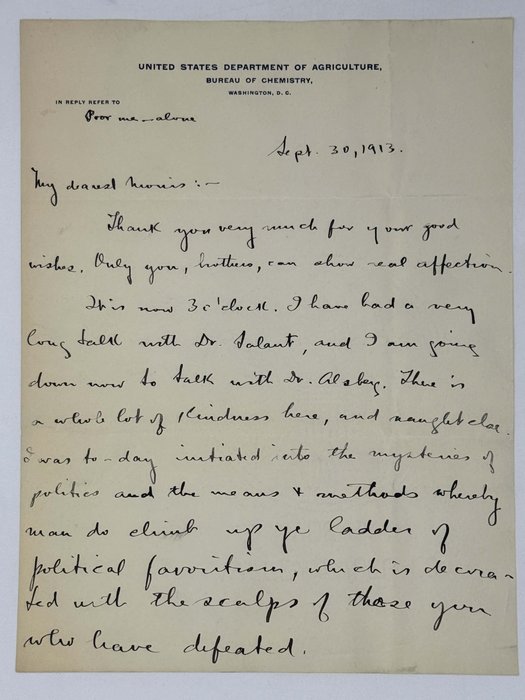 UNITED STATES DEPARTMENT OF AGRICULTURE,
BUREAU OF CHEMISTRY,
WASHINGTON, D. C.
IN REPLY REFER TO
Poor me - alone
Sept. 30, 1913.
My dearest Morris:-
Thank you very much for your good
wishes. Only you, brothers, can show real affection.
It is now 3 o'clock. I have had a very
long talk with Dr. Salant, and I am going
down now to talk with Dr. Alsberg. There is
a whole lot of kindness here, and naught else.
I was to-day initiated into the mysteries of
politics and the means & methods whereby
man do climb up ye ladder of
political favoritism, which is decora-
ted with the scalps of those you
who have defeated.